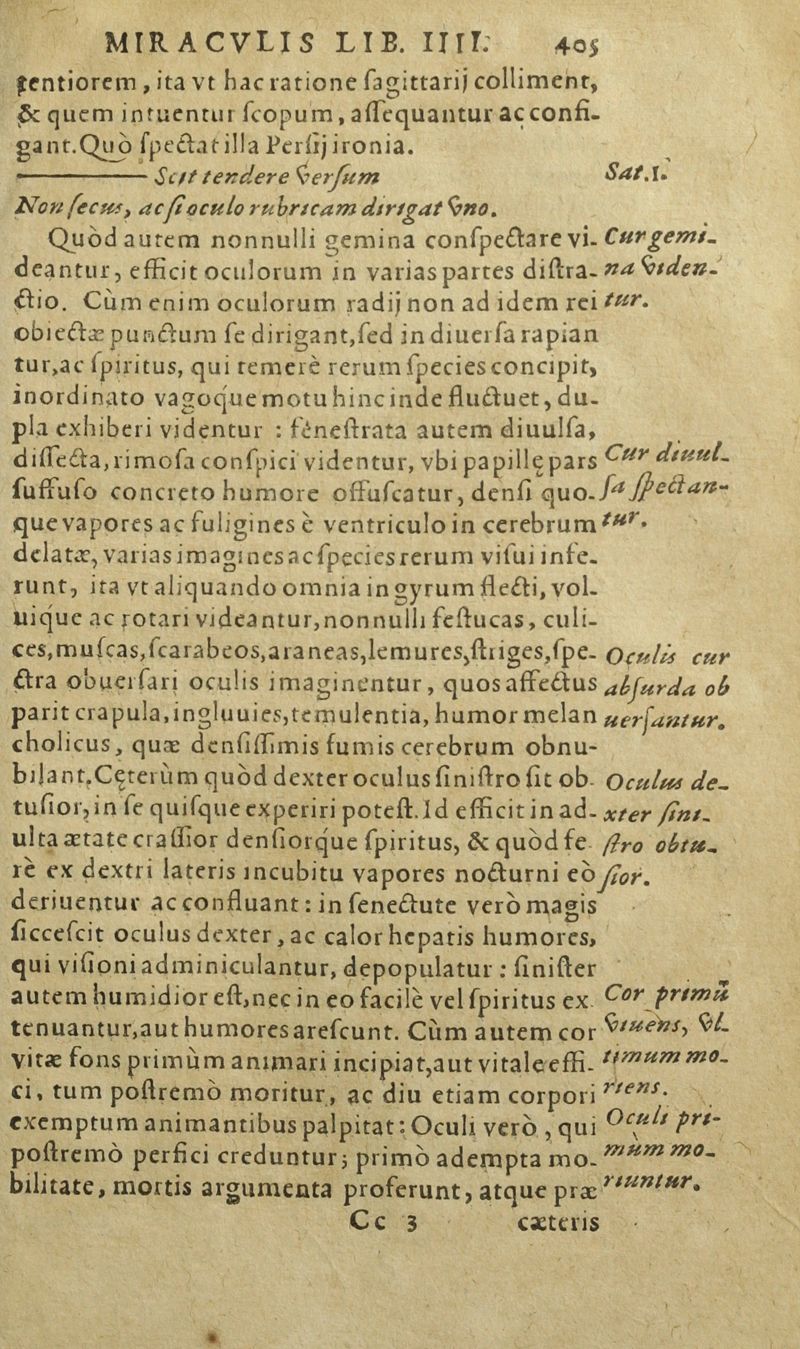 MIRACVLIS LIB. IIII. 405
tentiorem, ita vt hac ratione ſagittarij colliment,
& quem intuentur ſcopum, aſſequantur ac confi-
gant. Quò ſpectat illa Perſij ironia.
Scit tendere verſum
Sat.1.
Non ſecus, ac ſi oculo rubricam dirigat vno.
Quòd autem nonnulli gemina conſpectare vi-
Cur gemi-
deantur, efficit oculorum in varias partes diſtra-
na viden-
ctio. Cùm enim oculorum radij non ad idem rei
tur.
obiectæ punctum ſe dirigant, ſed in diuerſa rapian
tur, ac ſpiritus, qui temerè rerum ſpecies concipit,
inordinato vagoque motu hinc inde fluctuet, du-
pla exhiberi videntur : feneſtrata autem diuulſa,
diſſecta, rimoſa conſpici videntur, vbi papillę pars
Cur diuul-
ſuffuſo concreto humore offuſcatur, denſi quo-
ſa ſpectan-
que vapores ac fuligines è ventriculo in cerebrum
tur.
delatæ, varias imagines ac ſpecies rerum viſui infe-
runt, ita vt aliquando omnia in gyrum flecti, vol-
uique ac rotari videantur, nonnulli feſtucas, culi-
ces, muſcas, ſcarabeos, araneas, lemures, ſtriges, ſpe-
Oculis cur
ctra obuerſari oculis imaginentur, quos affectus
abſurda ob
parit crapula, ingluuies, temulentia, humor melan
uerſantur.
cholicus, quæ denſiſſimis fumis cerebrum obnu-
bilant. Cęterùm quòd dexter oculus ſiniſtro ſit ob-
Oculus de-
tuſior, in ſe quiſque experiri poteſt. Id efficit in ad-
xter ſini-
ulta ætate craſſior denſiorque ſpiritus, & quòd fe-
ſtro obtu-
rè ex dextri lateris incubitu vapores nocturni eò
ſior.
deriuentur ac confluant : in ſenectute verò magis
ſicceſcit oculus dexter, ac calor hepatis humores,
qui viſioni adminiculantur, depopulatur : ſiniſter
autem humidior eſt, nec in eo facilè vel ſpiritus ex
Cor primũ
tenuantur, aut humores areſcunt. Cùm autem cor
viuens, vl-
vitæ fons primùm animari incipiat, aut vitale effi-
timum mo-
ci, tum poſtremò moritur, ac diu etiam corpori
riens.
exemptum animantibus palpitat : Oculi verò, qui
Oculi pri-
poſtremò perfici creduntur; primò adempta mo-
mum mo-
bilitate, mortis argumenta proferunt, atque præ
riuntur.
Cc 3 cæteris